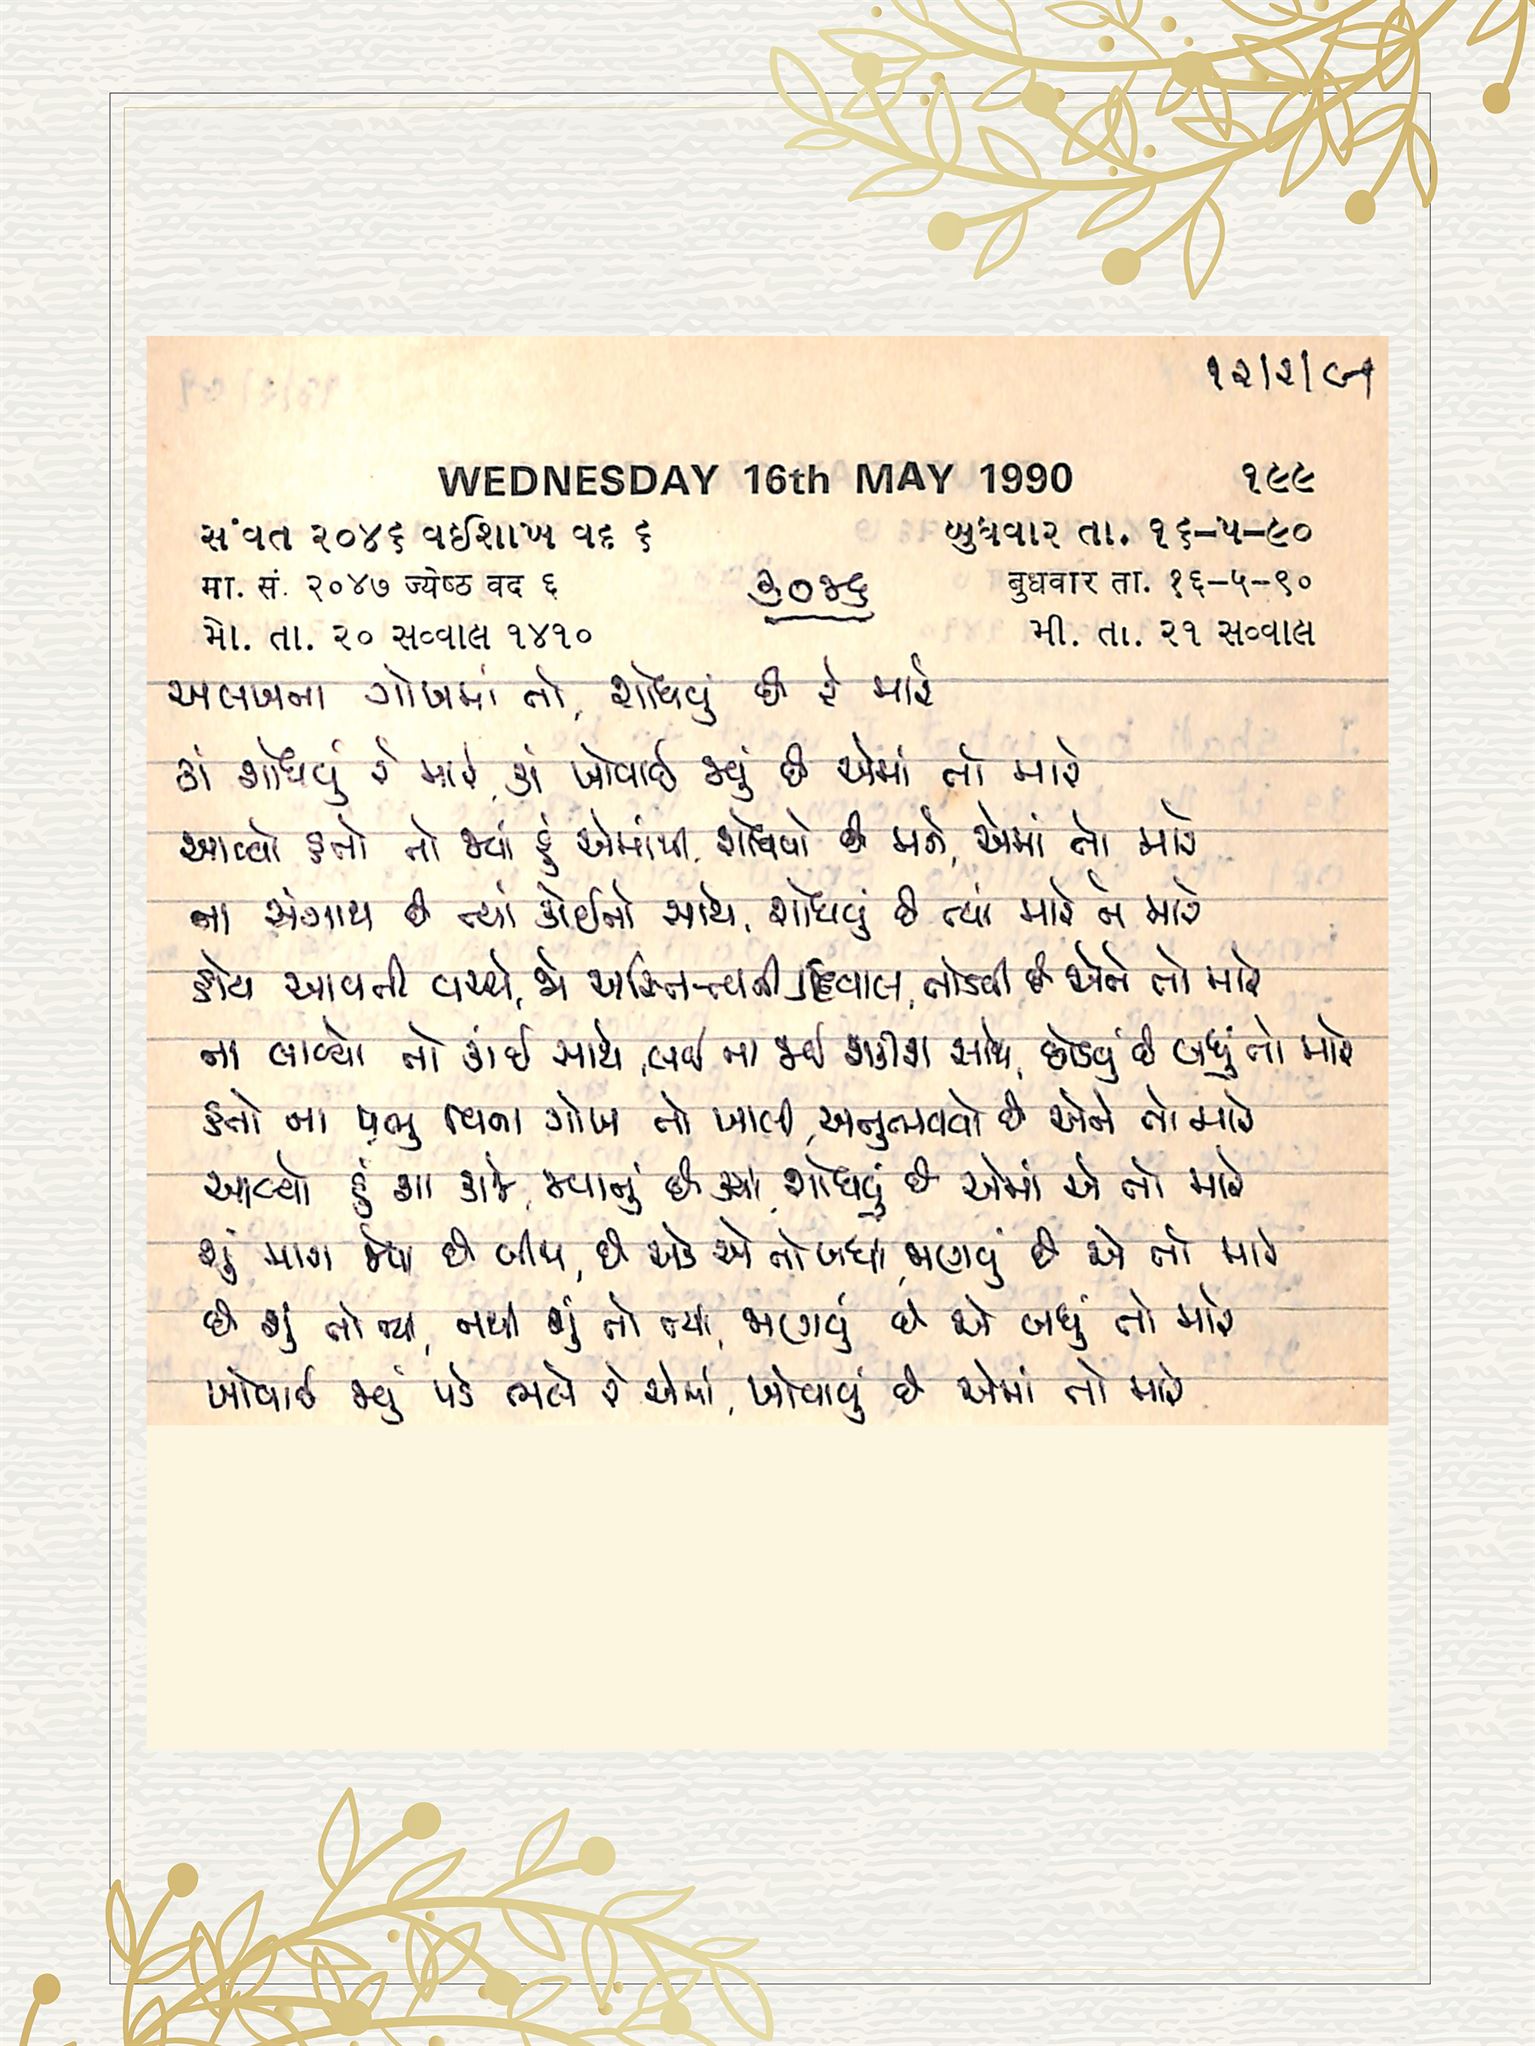 ૧૨/૨/૯૧
WEDNESDAY 16th MAY 1990 ૧૯૯
સંવત ૨૦૪૬ વઈશાખ વદ ૬ બુધવાર તા. ૧૬-૫-૯૦
मा. सं. २०४७ ज्येष्ठ वद ६ बुधवार ता. १६-५-९०
મો. તા. ૨૦ સવ્વાલ ૧૪૧૦ મી. તા. ૨૧ સવ્વાલ
૩૦૪૬
અલખના ગોખમાં તો, શોધવું છે રે મારે
કાં શોધવું રે મારે, કાં ખોવાઈ જવું છે એમાં તો મારે
આવ્યો હતો તો જ્યાં હું એમાંથી, શોધવો છે મને, એમાં તો મારે
ના સંગાથ છે ત્યાં કોઈનો સાથે, શોધવું છે ત્યાં મારે ને મારે
હોય આવતી વચ્ચે, જો અસ્તિત્વની દિવાલ, તોડવી છે એને તો મારે
ના લાવ્યો તો કાંઈ સાથે, લઈ ના જઈ શકીશ સાથે, છોડવું છે બધું તો મારે
હતો ના પ્રભુ વિના ગોખ તો ખાલી, અનુભવવો છે એને તો મારે
આવ્યો હું શા કાજે, જવાનું છે ક્યાં, શોધવું છે એમાં એ તો મારે
શું મારા જેવા છે બીજા, છે એક એ તો બધા, જાણવું છે એ તો મારે
છે શું તો ત્યાં, નથી શું તો ત્યાં, જાણવું છે એ બધું તો મારે
ખોવાઈ જવું પડે ભલે રે એમાં, ખોવાવું છે એમાં તો મારે